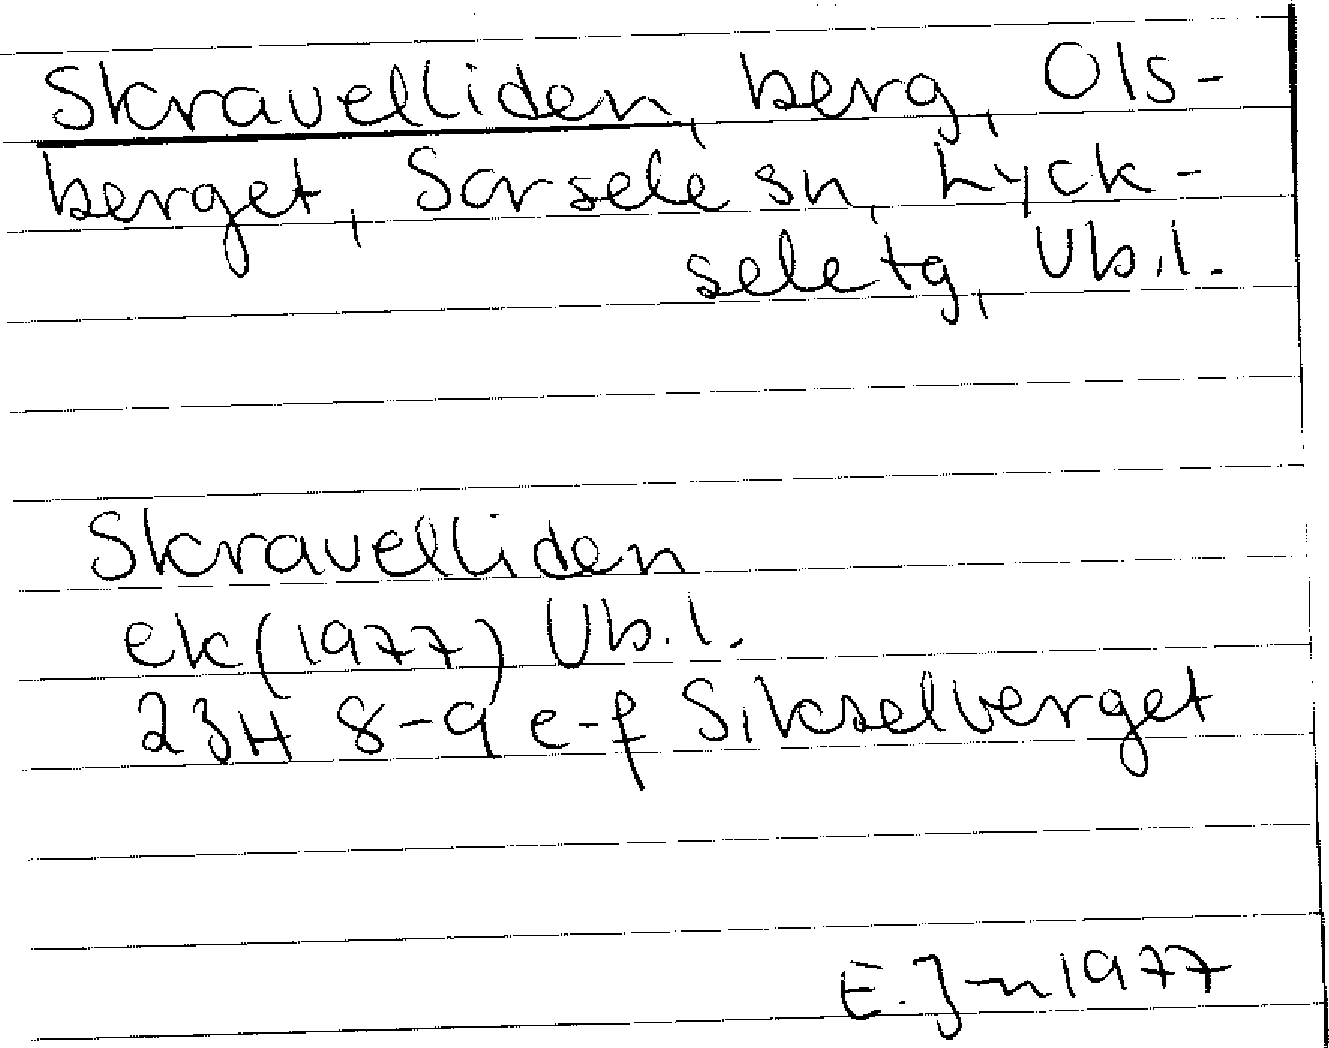 Skravelliden, berg, Ols-
berget, Sorsele sn, Lyck-
sele tg, Vb.l.
Skravelliden
ek (1977) Vb.l.
23H 8-9 e-f Sikselberget
E. J-n 1977